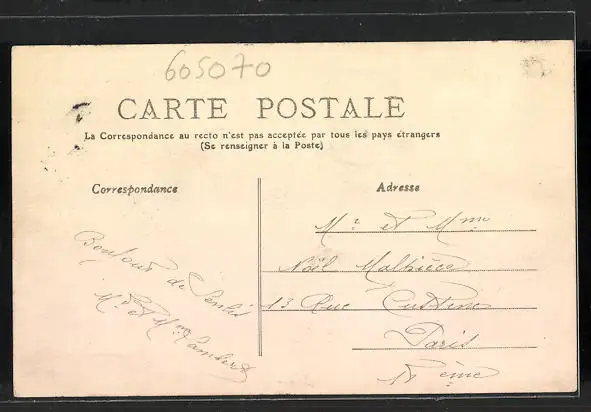 605070
CARTE POSTALE
La Correspondance au recto n'est pas acceptée par tous les pays étrangers
(Se renseigner à la Poste)
Correspondance
Adresse
Mr et Mme
Noël
13 Rue Custine
Paris
ème
Bonjour de Senlis
Mr et Mme Lambert